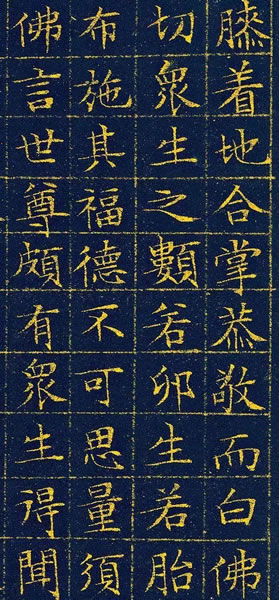 膝着地合掌恭敬而白佛
切衆生之類若卵生若胎
布施其福德不可思量須
佛言世尊頗有衆生得聞